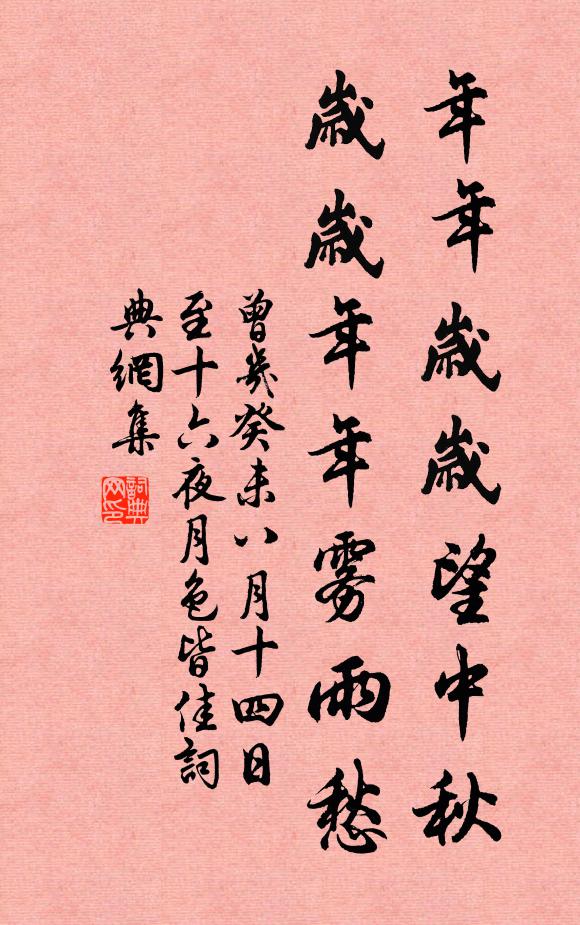 年年歲歲望中秋
歲歲年年雾雨愁
曾幾癸未八月十四日
至十六夜月色皆佳詞
典網集
詞典
网印